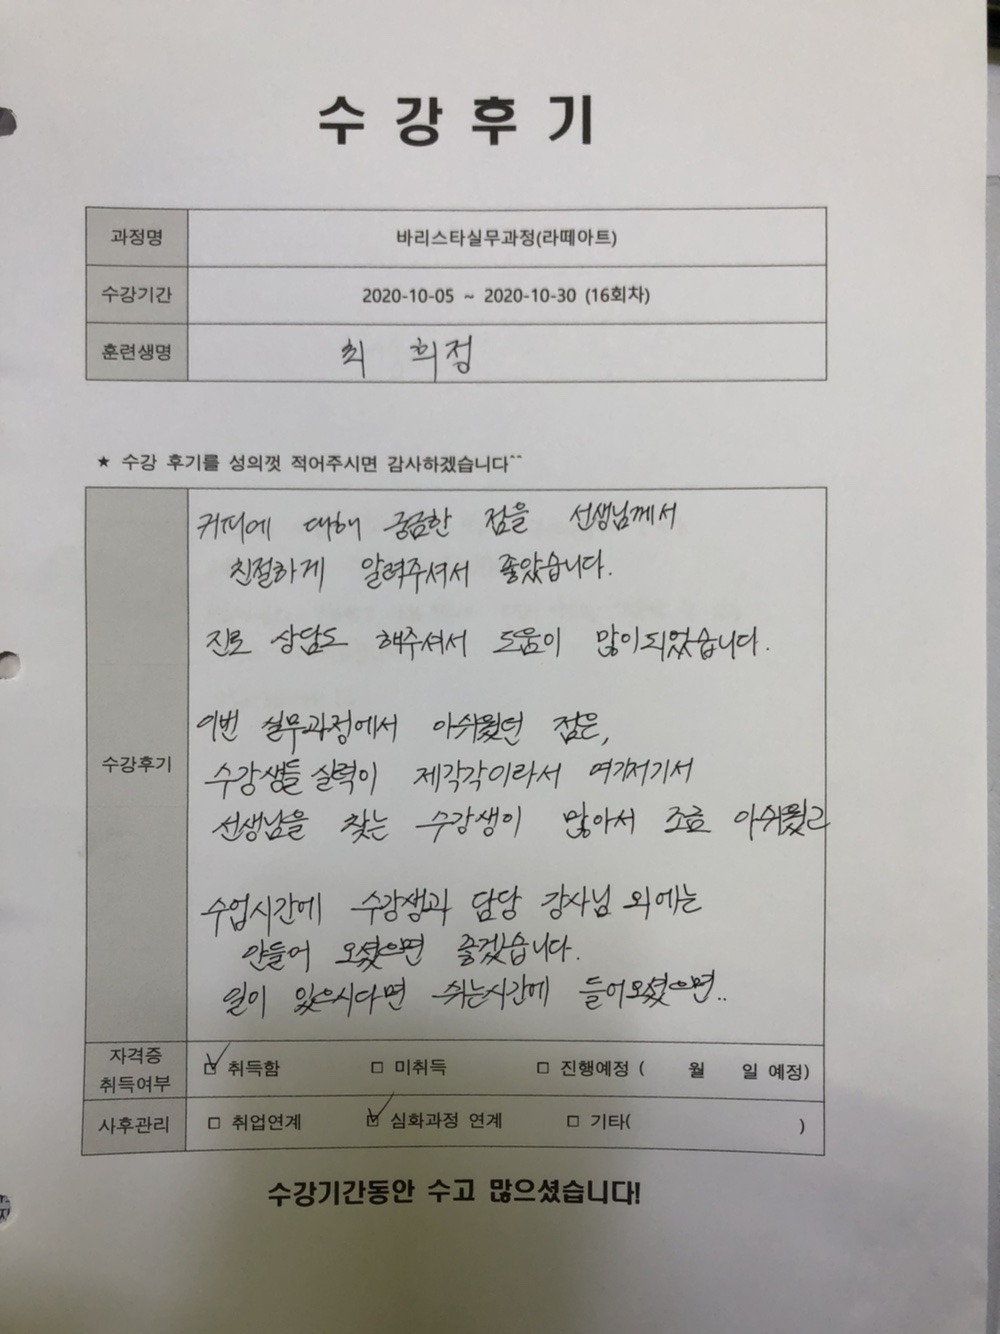 수 강 후 기
과정명 바리스타실무과정(라떼아트)
수강기간 2020-10-05 ~ 2020-10-30 (16회차)
훈련생명 최 희정
★ 수강 후기를 성의껏 적어주시면 감사하겠습니다^^
커피에 대해 궁금한 점을 선생님께서
친절하게 알려주셔서 좋았습니다.
진로 상담도 해주셔서 도움이 많이되었습니다.
이번 실무과정에서 아쉬웠던 점은,
수강후기
수강생들 실력이 제각각이라서 여기저기서
선생님을 찾는 수강생이 많아서 조금 아쉬웠고
수업시간에 수강생과 담당 강사님 외에는
안들어 오셨으면 좋겠습니다.
일이 있으시다면 쉬는시간에 들어오셨으면..
자격증 취득여부 ☑ 취득함 □ 미취득 □ 진행예정 ( 월 일 예정)
사후관리 □ 취업연계 ☑ 심화과정 연계 □ 기타( )
수강기간동안 수고 많으셨습니다!